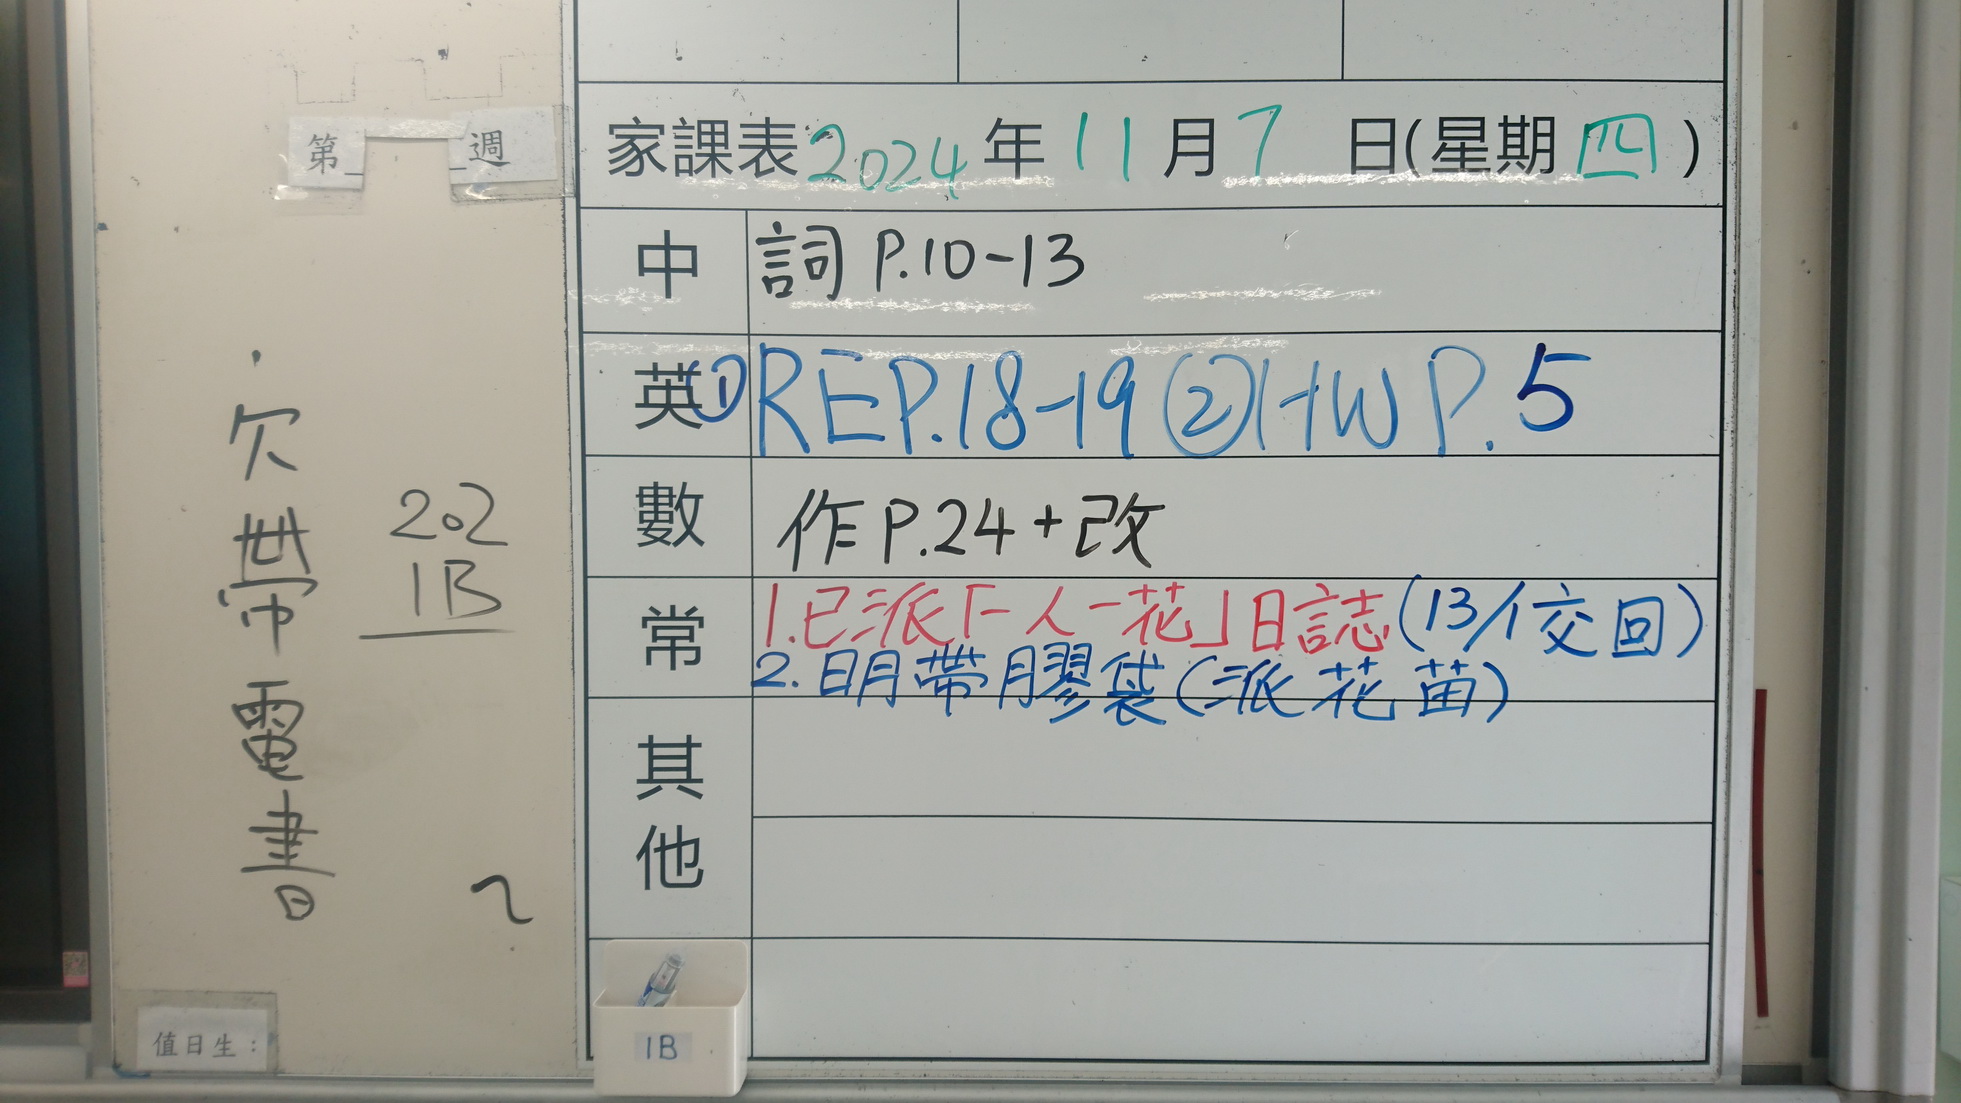 第_週
欠帶電書
202
1B
值日生：
家課表2024年11月7日(星期四)
中 詞 P.10-13
英 ①REP.18-19 ②HW P.5
數 作P.24+改
常 1.已派「一人一花」日誌(13/1交回)
2.明帶膠袋(派花苗)
其他
1B